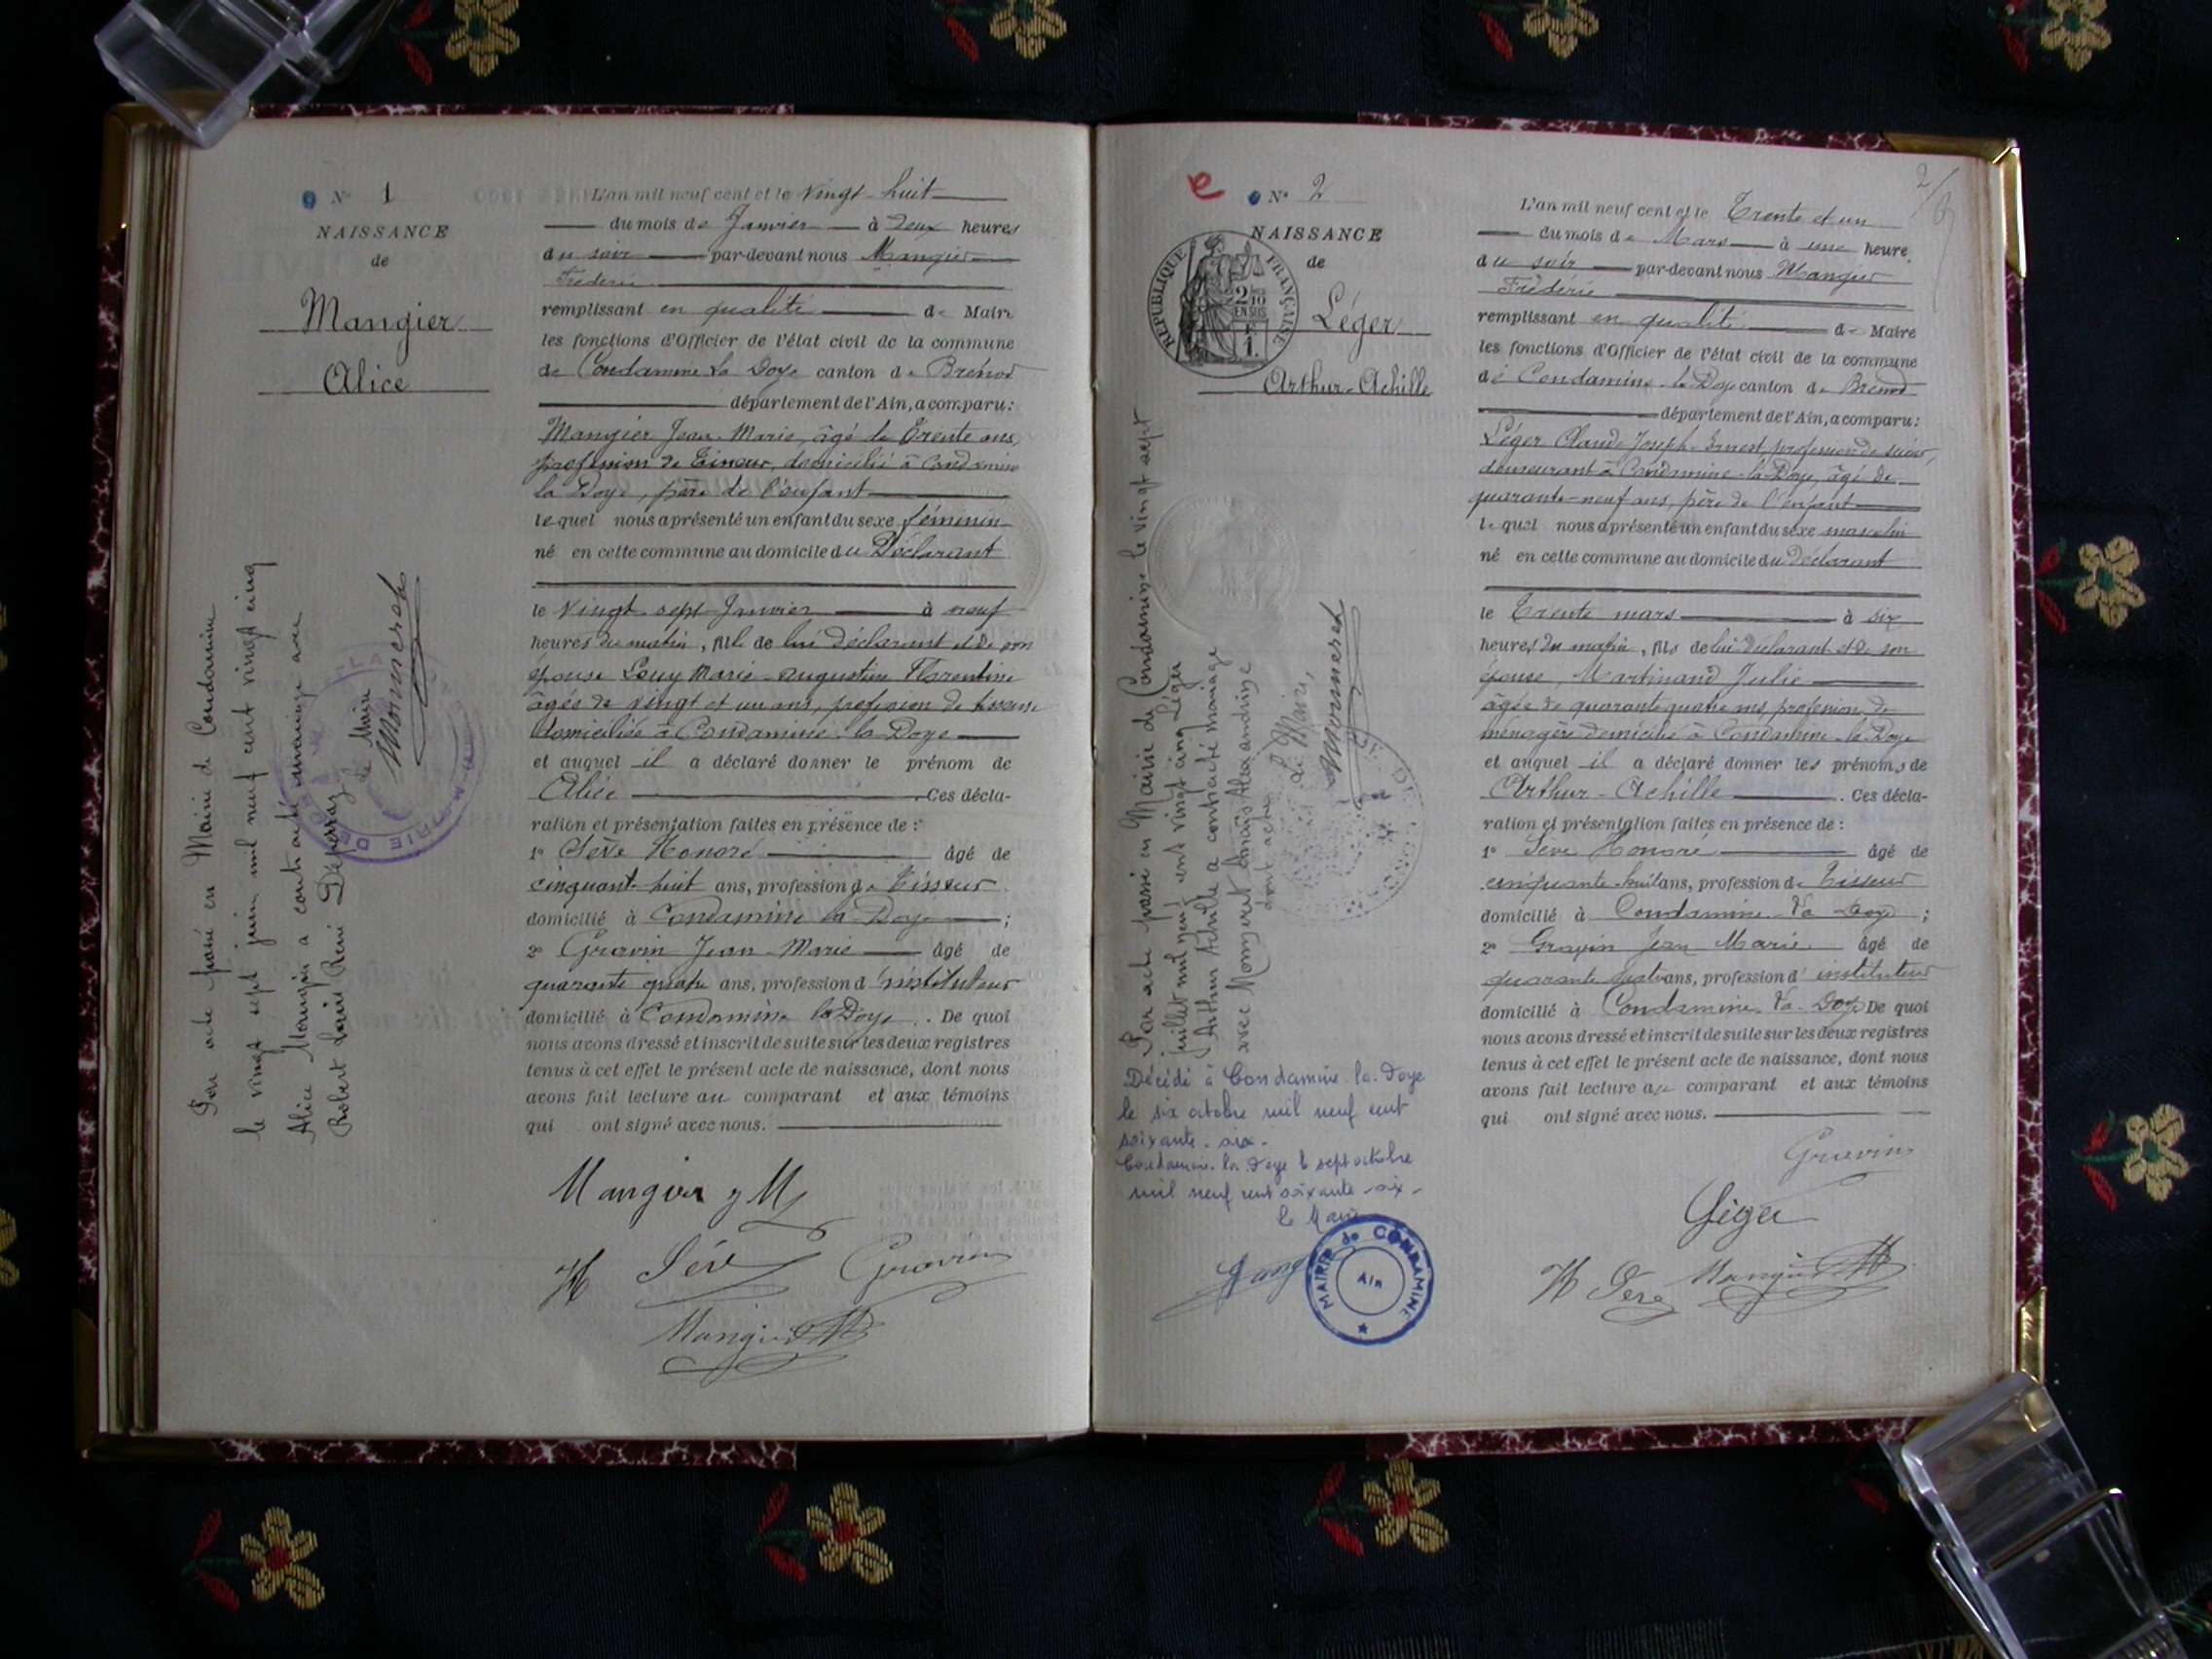 N° 1
NAISSANCE
de
Mangier
Alice
Par acte passé en Mairie de Condamine
le vingt sept juin mil neuf cent vingt cinq
Alice Mangier a contracté mariage avec
Robert Louis René Déperraz
le Maire
Monneret
L'an mil neuf cent et le vingt-huit
du mois de Janvier à deux heures
du soir par-devant nous Mangier
Fréderic
remplissant en qualité de Maire
les fonctions d'Officier de l'état civil de la commune
de Condamine la Doye canton de Brénod
département de l'Ain, a comparu:
Mangier Jean-Marie, âgé de Trente ans,
profession de , domicilié à Condamine
la Doye, père de l'enfant
lequel nous a présenté un enfant du sexe féminin
né en cette commune au domicile du Déclarant
le Vingt-sept Janvier à neuf
heures du matin, fille de lui déclarant et de son
épouse Marie-Augustine Florentine
âgée de vingt et un ans, profession de
domiciliée à Condamine-la-Doye
et auquel il a déclaré donner le prénom de
Alice . Ces décla-
ration et présentation faites en présence de :
1° Sève Honoré âgé de
cinquant-huit ans, profession de Tisseur
domicilié à Condamine la Doye ;
2° Gravin Jean-Marie âgé de
quarante quatre ans, profession d'instituteur
domicilié à Condamine la Doye . De quoi
nous avons dressé et inscrit de suite sur les deux registres
tenus à cet effet le présent acte de naissance, dont nous
avons fait lecture au comparant et aux témoins
qui ont signé avec nous.
Mangier J M
H Sève Gravin
Mangier
2
N° 2
NAISSANCE
de
REPUBLIQUE FRANÇAISE
2/10
EN SUS
1
Léger
Arthur-Achille
Par acte passé en Mairie de Condamine le vingt sept
juillet mil neuf cent vingt cinq Léger
Arthur Achille a contracté mariage
avec Monneret Alexandrine
dont acte
Le Maire,
Monneret
Décédé à Condamine-la-Doye
le six octobre mil neuf cent
soixante-six-
Condamine-la-Doye le sept octobre
mil neuf cent soixante-six-
le Maire
MAIRIE de CONDAMINE
Ain
L'an mil neuf cent et le Trente et un
du mois de Mars à une heure
du soir par-devant nous Mangier
Fréderic
remplissant en qualité de Maire
les fonctions d'Officier de l'état civil de la commune
de Condamine-la-Doye canton de Brénod
département de l'Ain, a comparu:
Léger Claude-Joseph-Ernest, profession de scieur,
demeurant à Condamine-la-Doye, âgé de
quarante-neuf ans, père de l'enfant
lequel nous a présenté un enfant du sexe masculin
né en cette commune au domicile du Déclarant
le Trente mars à six
heures du matin, fils de lui déclarant et de son
épouse, Martinand Julie
âgée de quarante quatre ans, profession de
ménagère domicilié à Condamine-la-Doye
et auquel il a déclaré donner les prénoms de
Arthur-Achille . Ces décla-
ration et présentation faites en présence de :
1° Sève Honoré âgé de
cinquante-huit ans, profession de Tisseur
domicilié à Condamine-la-Doye ;
2° Gravin Jean Marie âgé de
quarante quatre ans, profession d'instituteur
domicilié à Condamine-la-Doye De quoi
nous avons dressé et inscrit de suite sur les deux registres
tenus à cet effet le présent acte de naissance, dont nous
avons fait lecture au comparant et aux témoins
qui ont signé avec nous.
Gravin
Léger
H Sève Mangier